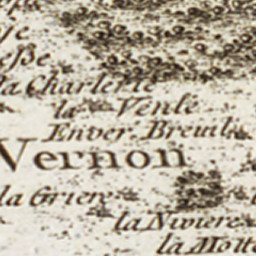 la Charlerie
la Venle
Enver. Breuil
Vernon
la Griere
la Niviere
la Motte